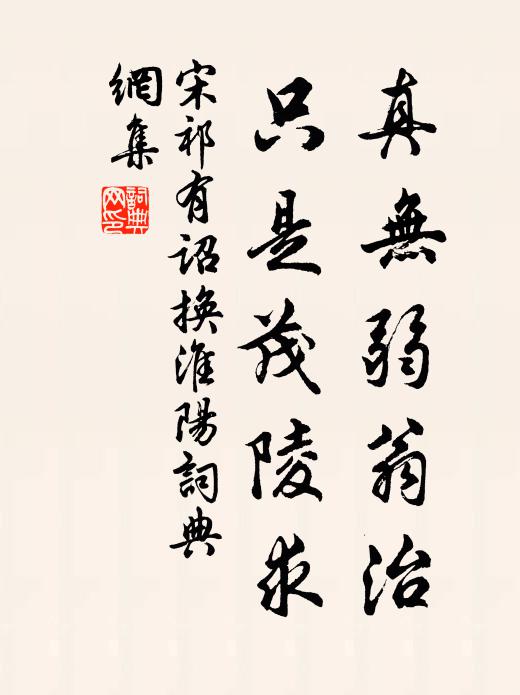 真無弱翁治
只是茂陵求
宋祁有詔換淮陽詞典
網集
詞典網印